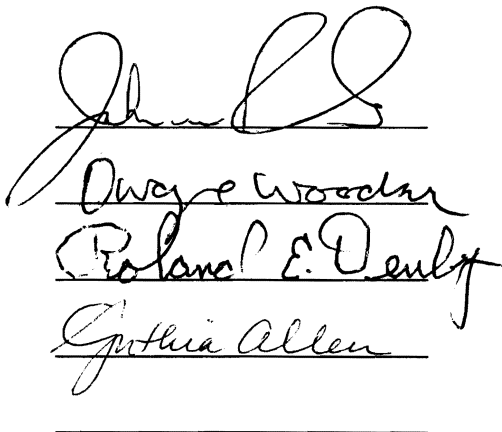 John
Dwayne Woodson
Roland E. Denby
Cynthia Allen